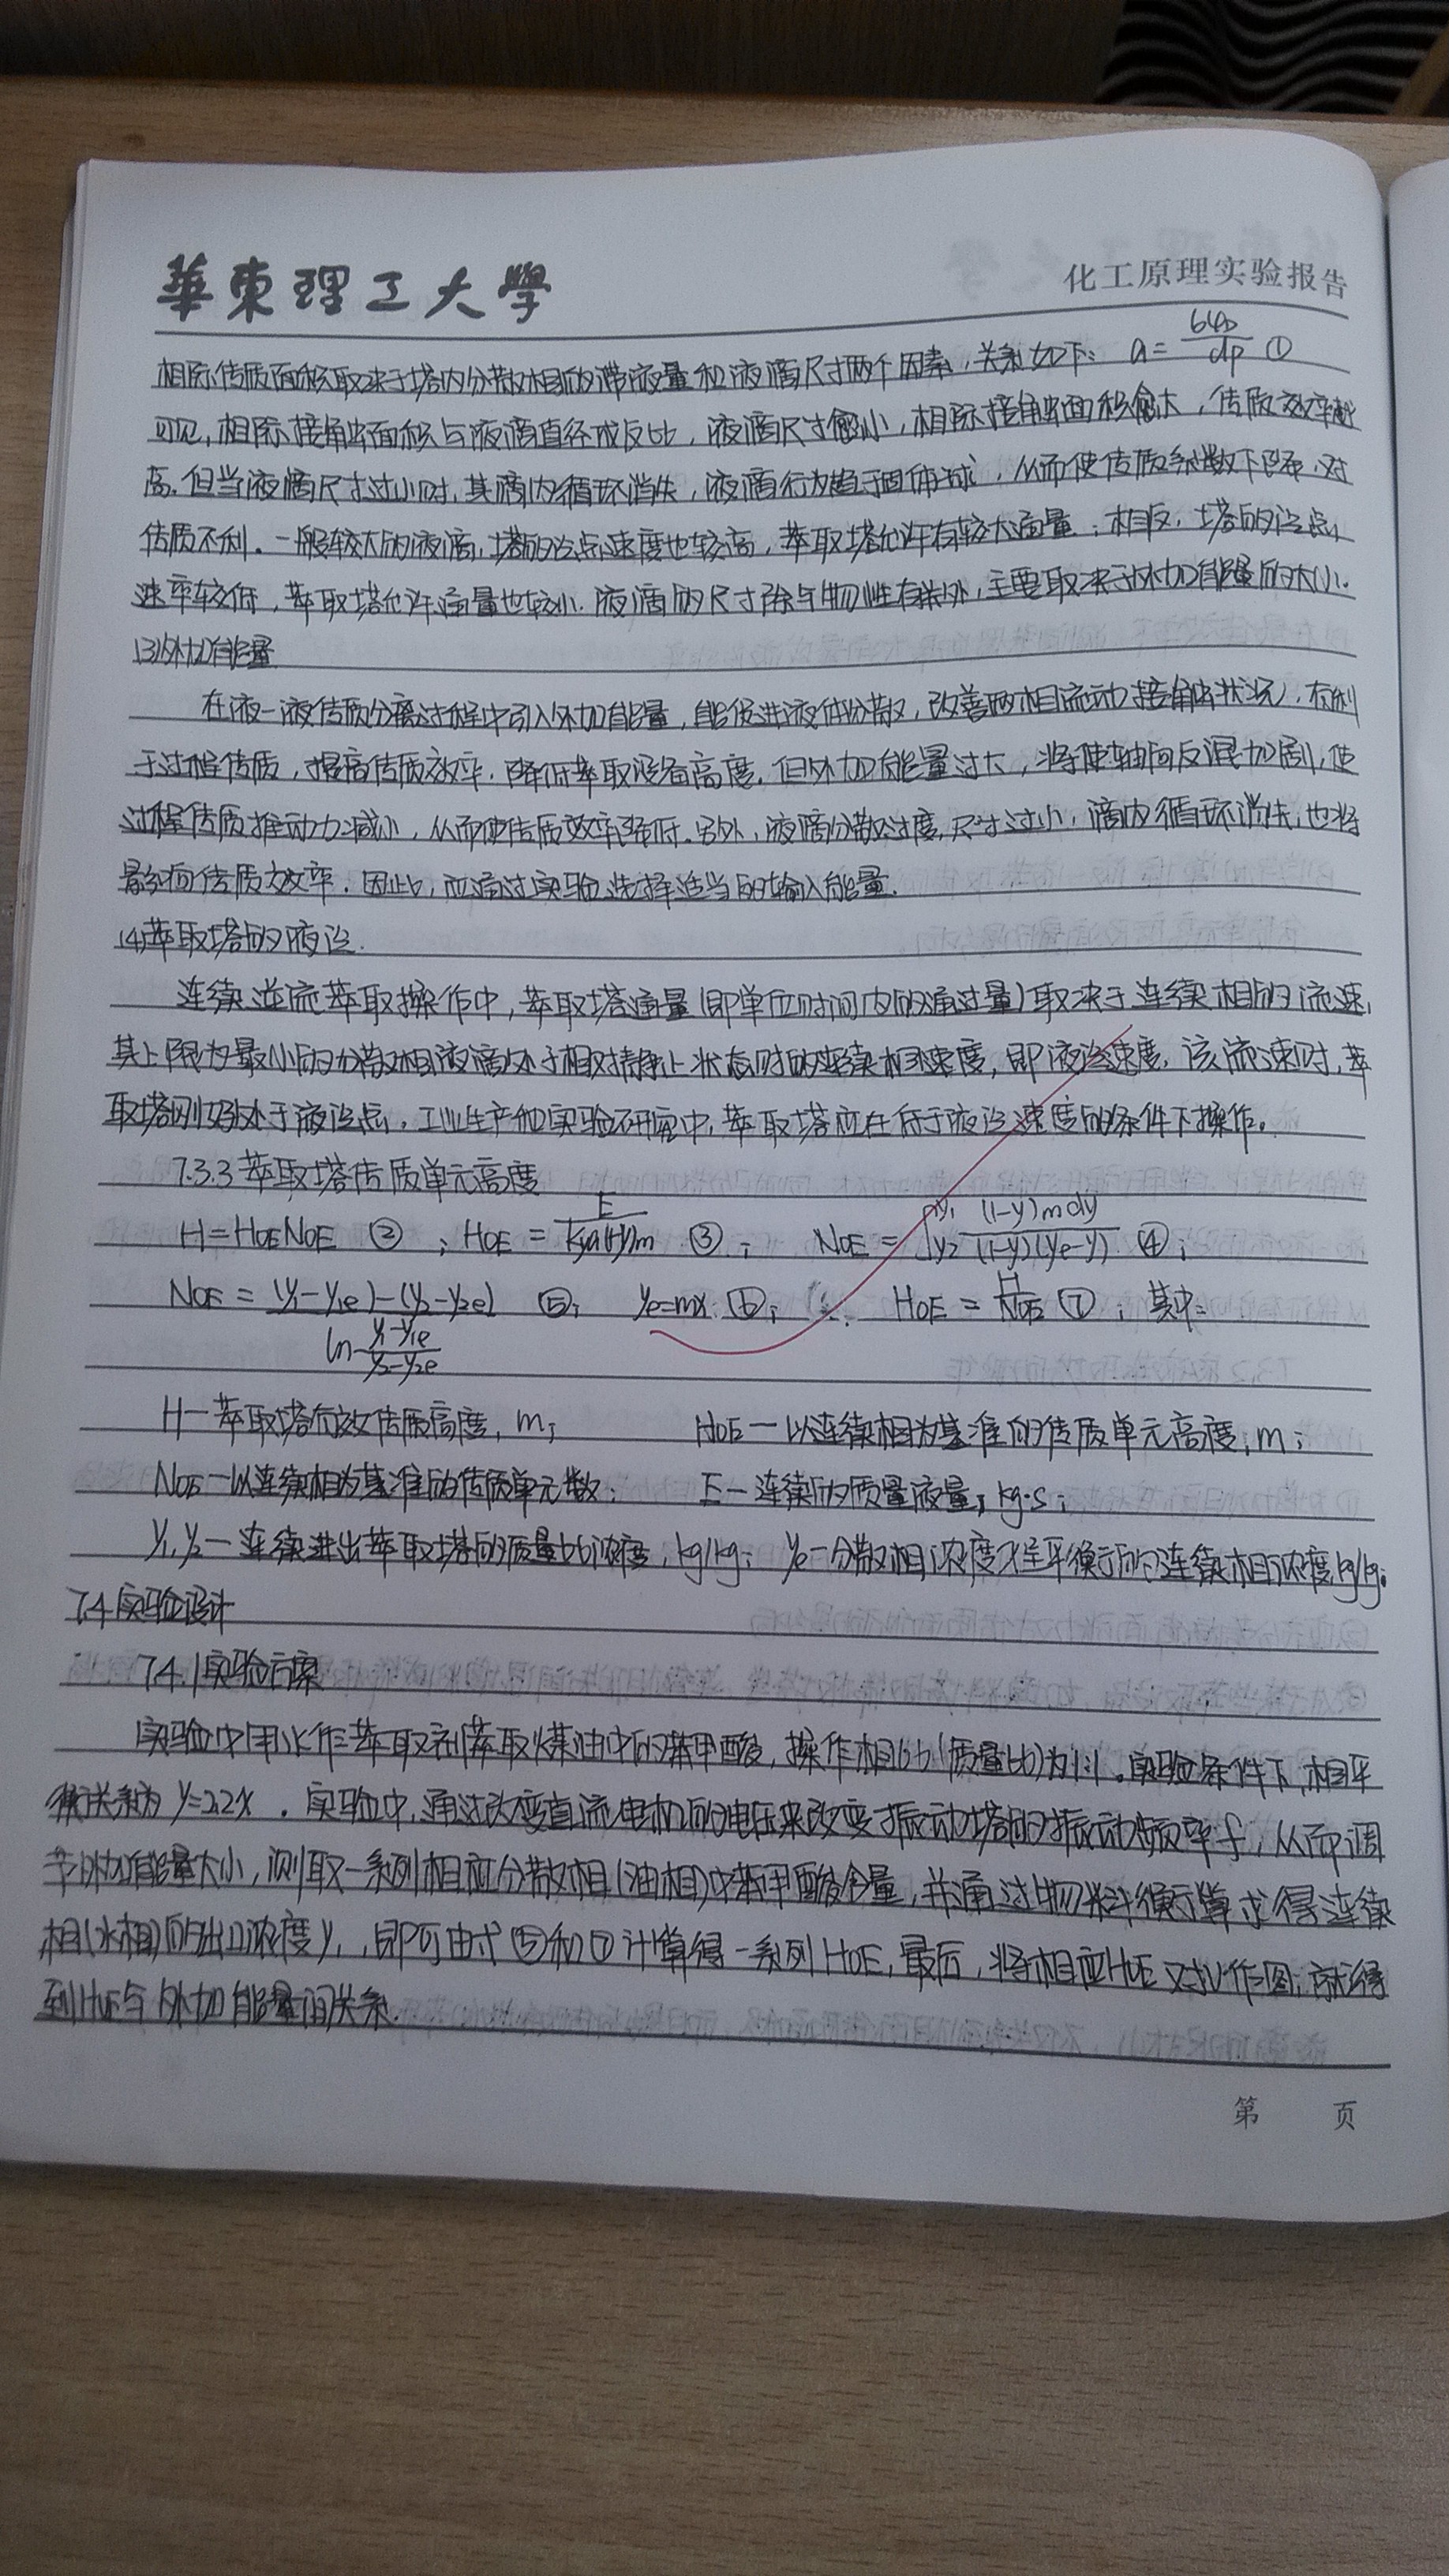 華東理工大學
化工原理实验报告
相际传质面积取决于塔内分散相的滞液量和液滴尺寸两个因素,关系如下: a = 6φD/dp ①
可见,相际接触面积与液滴直径成反比,液滴尺寸愈小,相际接触面积愈大,传质效率越
高.但当液滴尺寸过小时,其滴内循环消失,液滴行为趋于固体球,从而使传质系数下降,对
传质不利。一般较大的液滴,塔的泛点速度也较高,萃取塔允许有较大通量;相反,塔的泛点
速率较低,萃取塔允许通量也较小.液滴的尺寸除与物性有关外,主要取决于外加能量的大小.
(3)外加能量
在液-液传质分离过程中引入外加能量,能促进液体分散,改善两相流动接触状况,有利
于过程传质,提高传质效率.降低萃取设备高度.但外加能量过大,将使轴向反混加剧,使
过程传质推动力减小,从而使传质效率降低.另外,液滴分散过度,尺寸过小,滴内循环消失,也将
影响传质效率.因此,应通过实验选择适当的输入能量.
(4)萃取塔的液泛.
连续逆流萃取操作中,萃取塔通量(即单位时间内的通过量)取决于连续相的流速,
其上限为最小的分散相液滴处于相对静止状态时的连续相速度,即液泛速度,该流速时,萃
取塔刚好处于液泛点,工业生产和实验研究中,萃取塔应在低于液泛速度的条件下操作。
7.3.3 萃取塔传质单元高度
H=HOENOE ②; HOE = E/(Kya(1-y)m) ③; NOE = ∫y2 y1 (1-y)mdy/((1-y)(ye-y)) ④;
NOE = ((y1-y1e)-(y2-y2e))/(ln (y1-y1e)/(y2-y2e)) ⑤; ye=mx ⑥; HOE = H/NOE ⑦; 其中:
H—萃取塔有效传质高度,m; HOE—以连续相为基准的传质单元高度,m;
NOE—以连续相为基准的传质单元数; E—连续的质量流量,kg·s;
y1,y2—连续进出萃取塔的质量比浓度,kg/kg; ye—分散相浓度呈平衡的连续相浓度kg/kg.
7.4 实验设计
7.4.1 实验方案
实验中用水作萃取剂萃取煤油中的苯甲酸,操作相比(质量比)为1:1.实验条件下,相平
衡关系为 y=2.2x .实验中,通过改变直流电机的电压来改变振动塔的振动频率f,从而调
节外加能量大小,测取一系列相应分散相(油相)中苯甲酸含量,并通过物料衡算求得连续
相(水相)的出口浓度y1,即可由式⑤和⑦计算得一系列HOE,最后,将相应HOE对U作图,就得
到HOE与外加能量间关系.
第 页